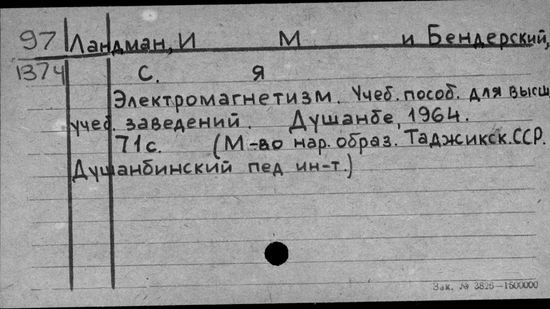 97 Ландман, И М и Бендерский,
1374 С. Я
Электромагнетизм. Учеб. пособ. для высш.
учеб. заведений. Душанбе, 1964.
71 с. (М-во нар. образ. Таджикск. ССР.
Душанбинский пед ин-т.)
Зак. № 3825-1500000